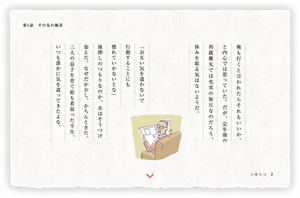 第1話　その先の風景
俺も行くと言われたらそれもいいか、
と内心では思っていた。だが、定年後の
再就職先では充実の毎日なのだろう、
休みを取る気はないようだ。
「お互い気を遣わないで
行動することにも
慣れていかないとな」
後押しのつもりなのか、夫はそうつけ
加えた。なぜだか少し、かちんときた。
三人の息子を育て姑も看取った半生。
いつも誰かに気を遣ってきたよな。
2